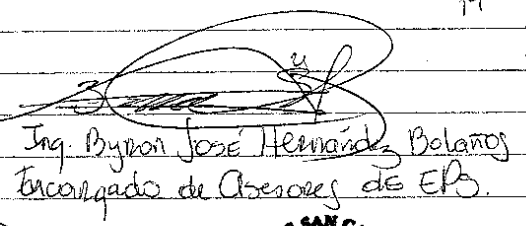 Ing. Byron José Hernández Bolaños
Encargado de Asesores de EPS.
SAN C